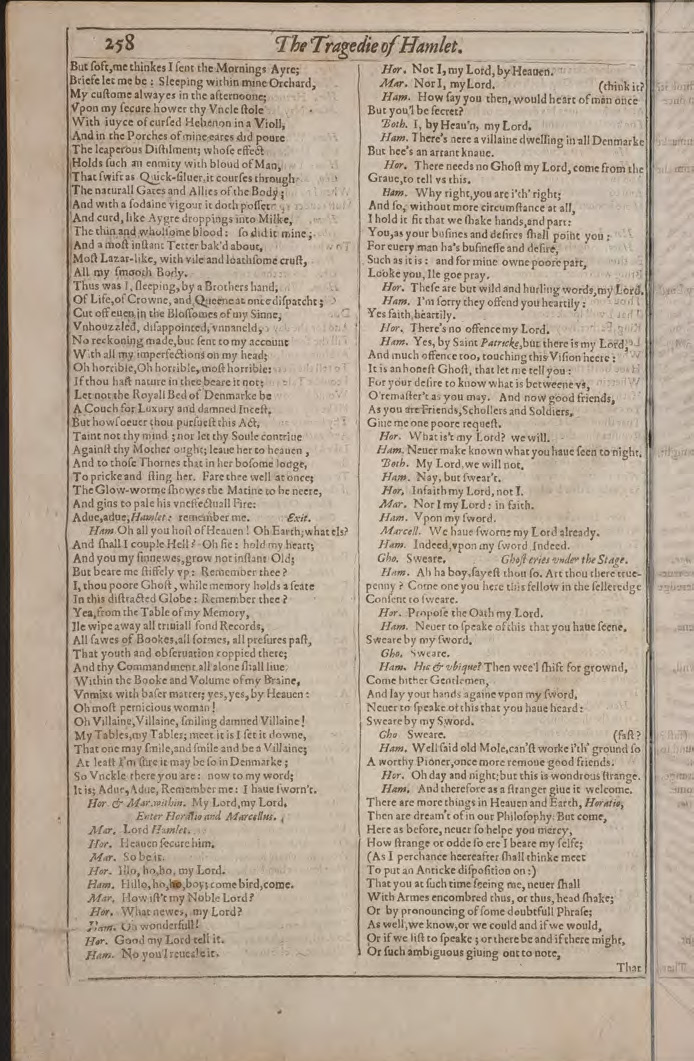 258
The Tragedie of Hamlet.
But ſoft, me thinkes I ſent the Mornings Ayre;
Briefe let me be: Sleeping within mine Orchard,
My cuſtome alwayes in the afternoone;
Vpon my ſecure hower thy Vncle ſtole
With iuyce of curſed Hebenon in a Violl,
And in the Porches of mine eares did poure
The leaperous Diſtilment; whoſe effect
Holds ſuch an enmity with bloud of Man,
That ſwift as Quick-ſiluer, it courſes through
The naturall Gates and Allies of the Body;
And with a ſodaine vigour it doth poſſet
And curd, like Aygre droppings into Milke,
The thin and wholſome blood: ſo did it mine;
And a moſt inſtant Tetter bak'd about,
Moſt Lazar-like, with vile and loathſome cruſt,
All my ſmooth Body.
Thus was I, ſleeping, by a Brothers hand,
Of Life, of Crowne, and Queene at once diſpatcht;
Cut off euen in the Bloſſomes of my Sinne,
Vnhouzzled, diſappointed, vnnaneld,
No reckoning made, but ſent to my account
With all my imperfections on my head;
Oh horrible, Oh horrible, moſt horrible:
If thou haſt nature in thee beare it not;
Let not the Royall Bed of Denmarke be
A Couch for Luxury and damned Inceſt.
But howſoeuer thou purſueſt this Act,
Taint not thy mind; nor let thy Soule contriue
Againſt thy Mother ought; leaue her to heauen,
And to thoſe Thornes that in her boſome lodge,
To pricke and ſting her. Fare thee well at once;
The Glow-worme ſhewes the Matine to be neere,
And gins to pale his vneffectuall Fire:
Adue, adue, Hamlet: remember me. Exit.
Ham. Oh all you hoſt of Heauen! Oh Earth; what els?
And ſhall I couple Hell? Oh fie: hold my heart;
And you my ſinnewes, grow not inſtant Old;
But beare me ſtiffely vp: Remember thee?
I, thou poore Ghoſt, while memory holds a ſeate
In this diſtracted Globe: Remember thee?
Yea, from the Table of my Memory,
Ile wipe away all triuiall fond Records,
All ſawes of Bookes, all formes, all preſures paſt,
That youth and obſeruation coppied there;
And thy Commandment all alone ſhall liue
Within the Booke and Volume of my Braine,
Vnmixt with baſer matter; yes, yes, by Heauen:
Oh moſt pernicious woman!
Oh Villaine, Villaine, ſmiling damned Villaine!
My Tables, my Tables; meet it is I ſet it downe,
That one may ſmile, and ſmile and be a Villaine;
At leaſt I'm ſure it may be ſo in Denmarke;
So Vnckle there you are: now to my word;
It is; Adue, Adue, Remember me: I haue ſworn't.
Hor. & Mar. within. My Lord, my Lord.
Enter Horatio and Marcellus.
Mar. Lord Hamlet.
Hor. Heauen ſecure him.
Mar. So be it.
Hor. Illo, ho, ho, my Lord.
Ham. Hillo, ho, ho, boy; come bird, come.
Mar. How iſt't my Noble Lord?
Hor. What newes, my Lord?
Ham. Oh wonderfull!
Hor. Good my Lord tell it.
Ham. No you'l reueale it.
Hor. Not I, my Lord, by Heauen.
Mar. Nor I, my Lord. (think it?
Ham. How ſay you then, would heart of man once
But you'l be ſecret?
Both. I, by Heau'n, my Lord.
Ham. There's nere a villaine dwelling in all Denmarke
But hee's an arrant knaue.
Hor. There needs no Ghoſt my Lord, come from the
Graue, to tell vs this.
Ham. Why right, you are i'th' right;
And ſo, without more circumſtance at all,
I hold it fit that we ſhake hands, and part:
You, as your buſines and deſires ſhall point you:
For euery man ha's buſineſſe and deſire,
Such as it is: and for mine owne poore part,
Looke you, Ile goe pray.
Hor. Theſe are but wild and hurling words, my Lord.
Ham. I'm ſorry they offend you heartily:
Yes faith, heartily.
Hor. There's no offence my Lord.
Ham. Yes, by Saint Patricke, but there is my Lord,
And much offence too, touching this Viſion heere:
It is an honeſt Ghoſt, that let me tell you:
For your deſire to know what is betweene vs,
O'remaſter't as you may. And now good friends,
As you are Friends, Schollers and Soldiers,
Giue me one poore requeſt.
Hor. What is't my Lord? we will.
Ham. Neuer make known what you haue ſeen to night.
Both. My Lord, we will not.
Ham. Nay, but ſwear't.
Hor. Infaith my Lord, not I.
Mar. Nor I my Lord: in faith.
Ham. Vpon my ſword.
Marcell. We haue ſworne my Lord already.
Ham. Indeed, vpon my ſword, Indeed.
Gho. Sweare. Ghoſt cries vnder the Stage.
Ham. Ah ha boy, ſayeſt thou ſo. Art thou there true-
penny? Come one you here this fellow in the ſelleredge
Conſent to ſweare.
Hor. Propoſe the Oath my Lord.
Ham. Neuer to ſpeake of this that you haue ſeene.
Sweare by my ſword.
Gho. Sweare.
Ham. Hic & vbique? Then wee'l ſhift for grownd,
Come hither Gentlemen,
And lay your hands againe vpon my ſword,
Neuer to ſpeake of this that you haue heard:
Sweare by my Sword.
Gho. Sweare. (faſt?
Ham. Well ſaid old Mole, can'ſt worke i'th' ground ſo
A worthy Pioner, once more remoue good friends.
Hor. Oh day and night: but this is wondrous ſtrange.
Ham. And therefore as a ſtranger giue it welcome.
There are more things in Heauen and Earth, Horatio,
Then are dream't of in our Philoſophy. But come,
Here as before, neuer ſo helpe you mercy,
How ſtrange or odde ſo ere I beare my ſelfe;
(As I perchance heereafter ſhall thinke meet
To put an Anticke diſpoſition on:)
That you at ſuch time ſeeing me, neuer ſhall
With Armes encombred thus, or thus, head ſhake;
Or by pronouncing of ſome doubtfull Phraſe;
As well, we know, or we could and if we would,
Or if we liſt to ſpeake; or there be and if there might,
Or ſuch ambiguous giuing out to note,
That